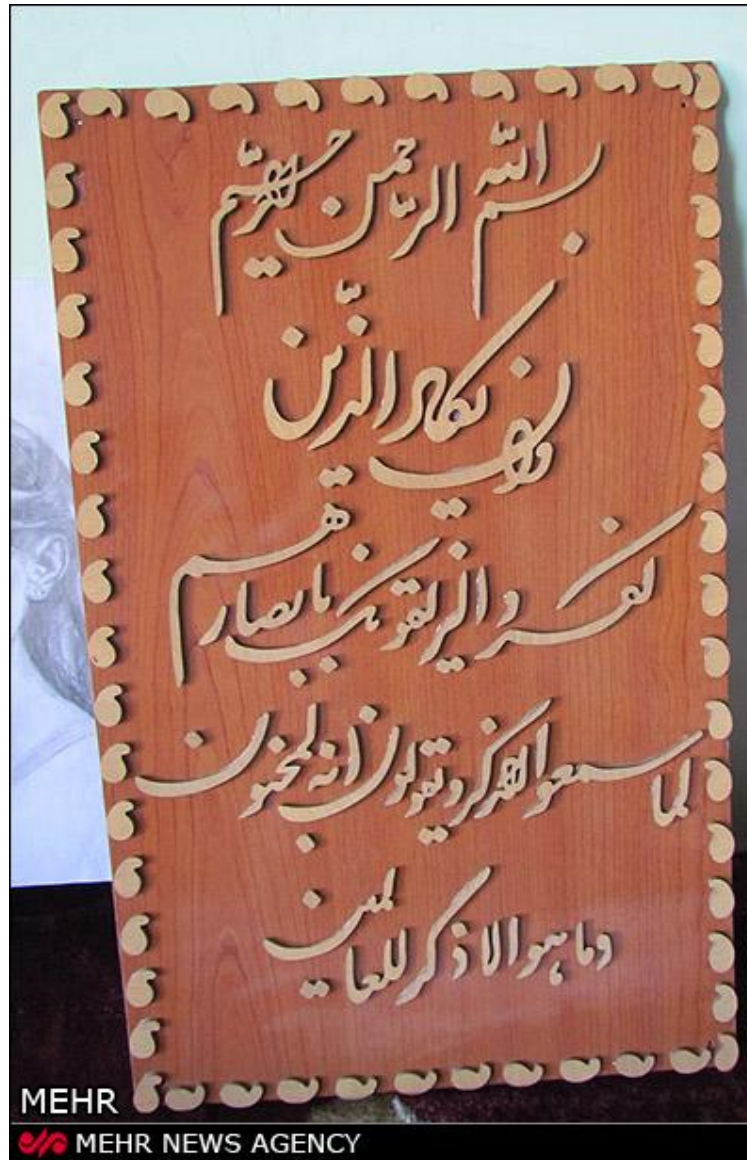 بسم الله الرحمن الرحیم
وان یکاد الذین
کفروا لیزلقونک بابصارهم
لما سمعوا الذکر و یقولون انه لمجنون
وما هو الا ذکر للعالمین
MEHR
MEHR NEWS AGENCY